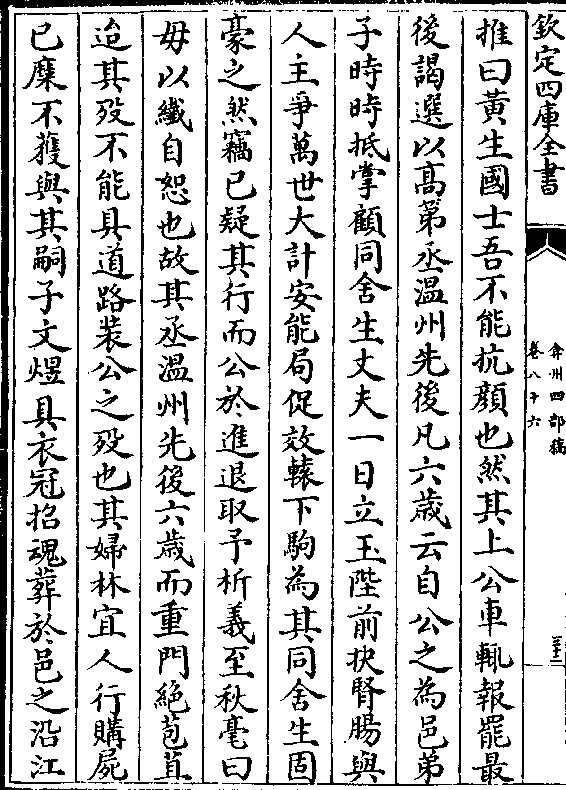 欽定四庫全書
弇州四部稿
卷八十六
推曰黄生國士吾不能抗顔也然其上公車輒報罷最
後謁選以髙第丞溫州先後凡六歲云自公之為邑弟
子時時抵掌顧同舍生丈夫一日立玉陛前抉腎腸與
人主爭萬世大計安能局促效轅下駒為其同舍生固
豪之然竊已疑其行而公於進退取予析義至秋毫曰
毋以纎自恕也故其丞溫州先後六歲而重門絶苞苴
迨其歿不能具道路裝公之歿也其婦林宜人行購屍
已糜不獲與其嗣子文煜具衣冠招魂葬於邑之沿江